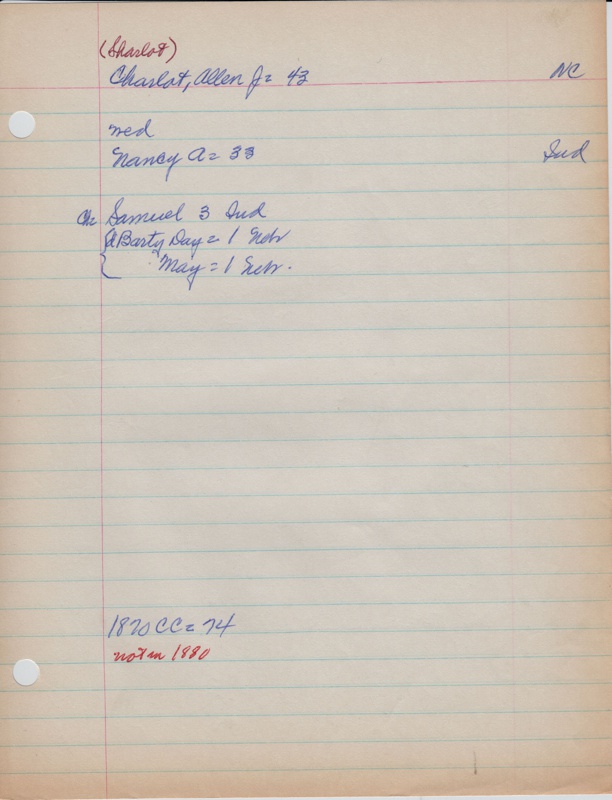 (Sharlot)
Charlot, Allen J = 43 NC
wed
Nancy A = 33 Ind
Ch = Samuel 3 Ind
Barty Day = 1 Nebr
May = 1 Nebr.
1870 CC = 74
not in 1880